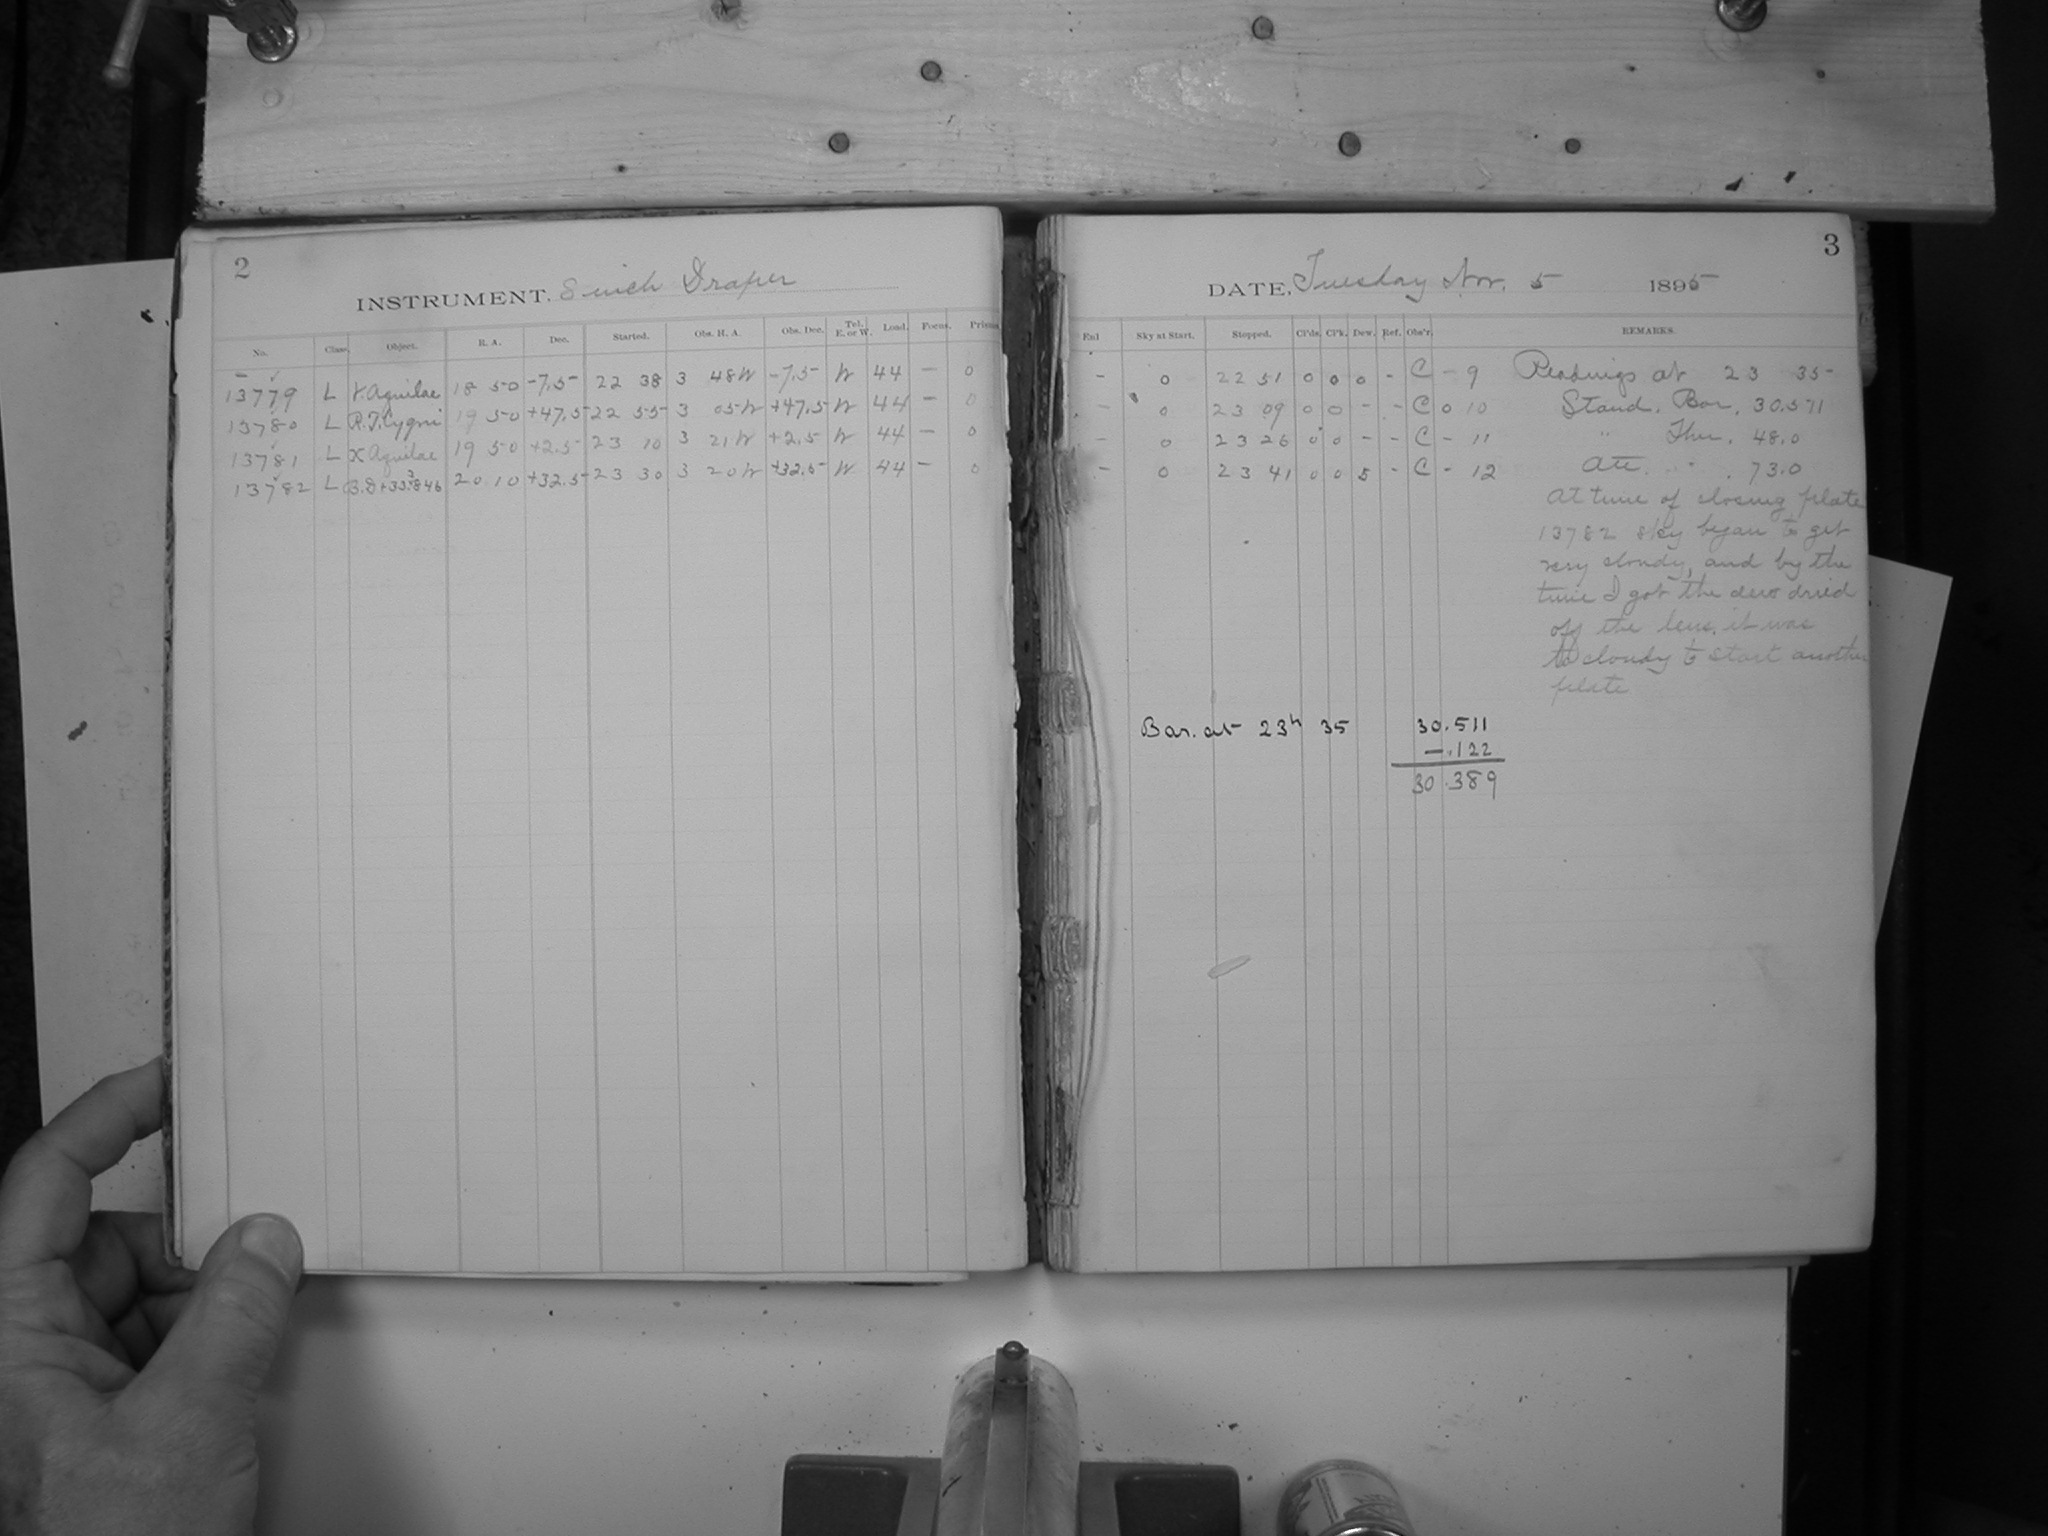 2
INSTRUMENT, 8 inch Draper
No. Class. Object. R. A. Dec. Started. Obs. H. A. Obs. Dec. Tel. E. or W. Load. Focus. Prism
13779 L Aquilae 18 50 -7.5 22 38 3 48 W -7.5 W 44 — 0
13780 L R.T. Cygni 19 50 +47.5 22 55 3 05 W +47.5 W 44 — 0
13781 L X Aquilae 19 50 +2.5 23 10 3 21 W +2.5 W 44 — 0
13782 L B.D+33 3846 20 10 +32.5 23 30 3 20 W +32.5 W 44 — 0
3
DATE, Tuesday Nov. 5 1895
Sky at Start. Stopped. Cl'ds. Cl'k. Dew. Ref. Obs'r. REMARKS.
- 0 22 51 0 0 0 - C - 9 Readings at 23 35
- 0 23 09 0 0 - - C 0 10 Stand. Bar. 30.511
- 0 23 26 0 0 - - C - 11 " Ther. 48.0
- 0 23 41 0 0 5 - C - 12 Att. " 73.0
At time of closing plate
13782 sky began to get
very cloudy, and by the
time I got the dew dried
off the lens, it was
to cloudy to start another
plate
Bar. at 23h 35 30.511
-.122
30.389